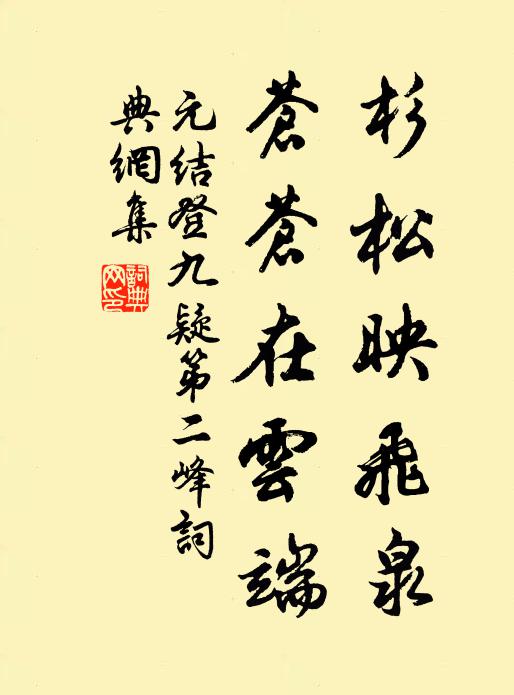 杉松映飛泉
蒼蒼在雲端
元结登九疑第二峰詞
典網集
詞典网印